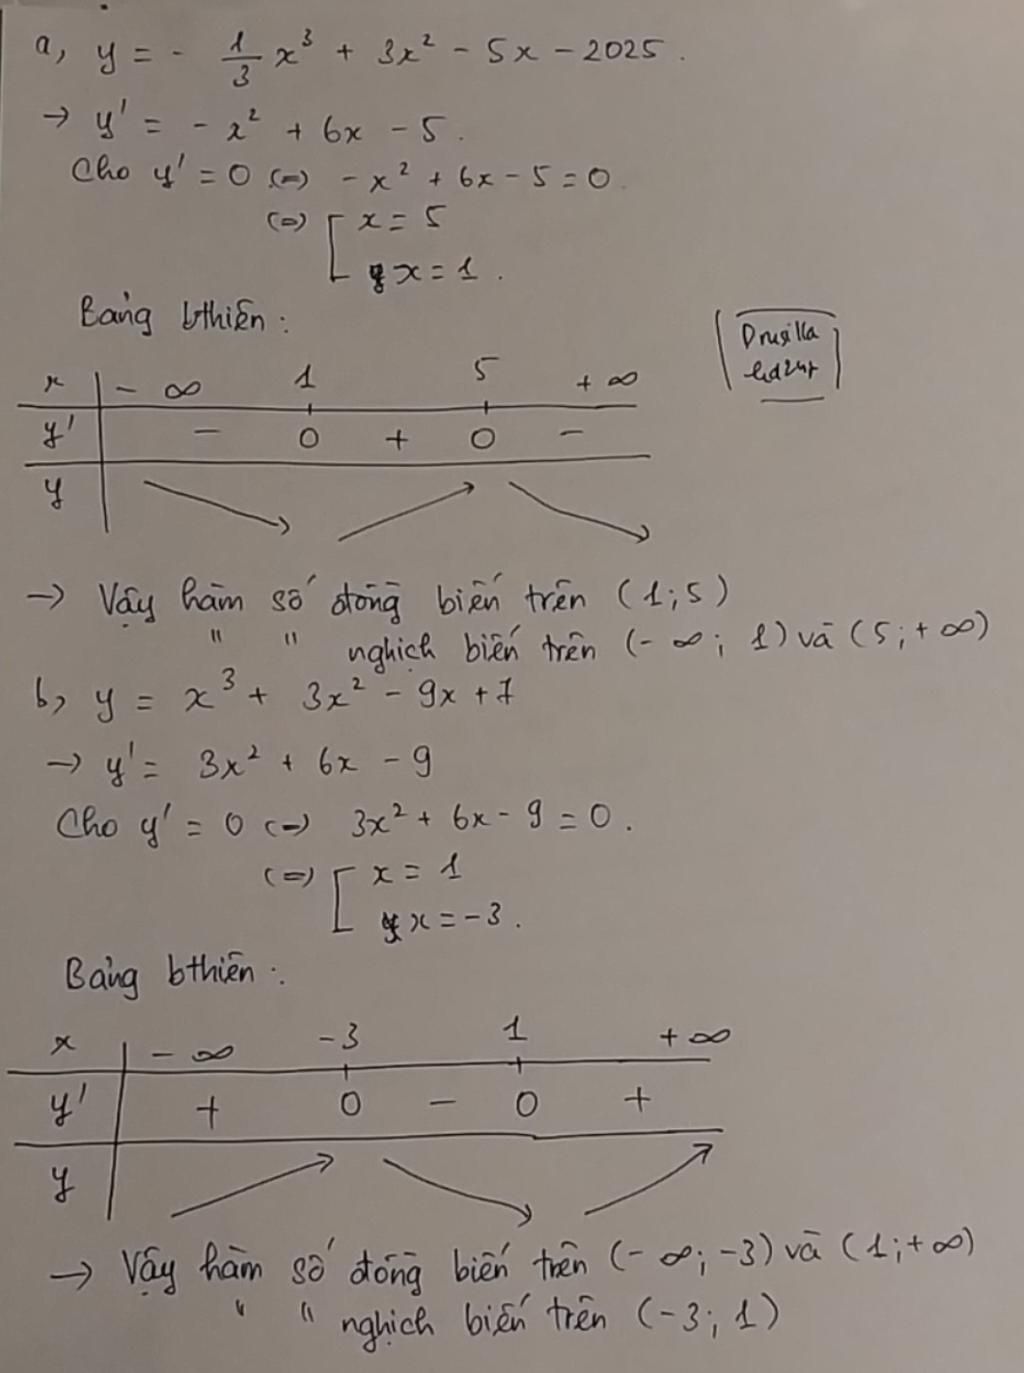 a, y = - 1/3 x³ + 3x² - 5x - 2025.
→ y' = - x² + 6x - 5.
Cho y' = 0 (=) - x² + 6x - 5 = 0.
(=) [ x = 5
x = 1.
Bảng bthiên:
x | - ∞ 1 5 + ∞
y' | - 0 + 0 -
y
Drusilla
→ Vậy hàm số đồng biến trên (1; 5)
" " nghịch biến trên (- ∞; 1) và (5; + ∞)
b, y = x³ + 3x² - 9x + 7
→ y' = 3x² + 6x - 9
Cho y' = 0 (=) 3x² + 6x - 9 = 0.
(=) [ x = 1
x = -3.
Bảng bthiên:
x | - ∞ -3 1 + ∞
y' | + 0 - 0 +
y
→ Vậy hàm số đồng biến trên (- ∞; -3) và (1; + ∞)
" " nghịch biến trên (-3; 1)